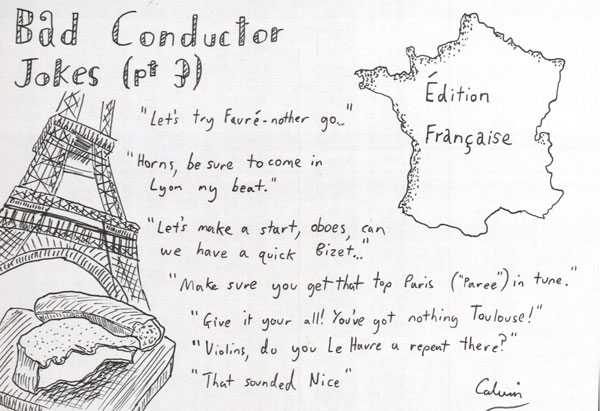 Bad Conductor
Jokes (pt 3)
Édition
Française
"Let's try Fauré-nother go..."
"Horns, be sure to come in
Lyon my beat."
"Let's make a start, oboes, can
we have a quick Bizet..."
"Make sure you get that top Paris ("Paree") in tune."
"Give it your all! You've got nothing Toulouse!"
"Violins, do you Le Havre a repeat there?"
"That sounded Nice"
Calvin